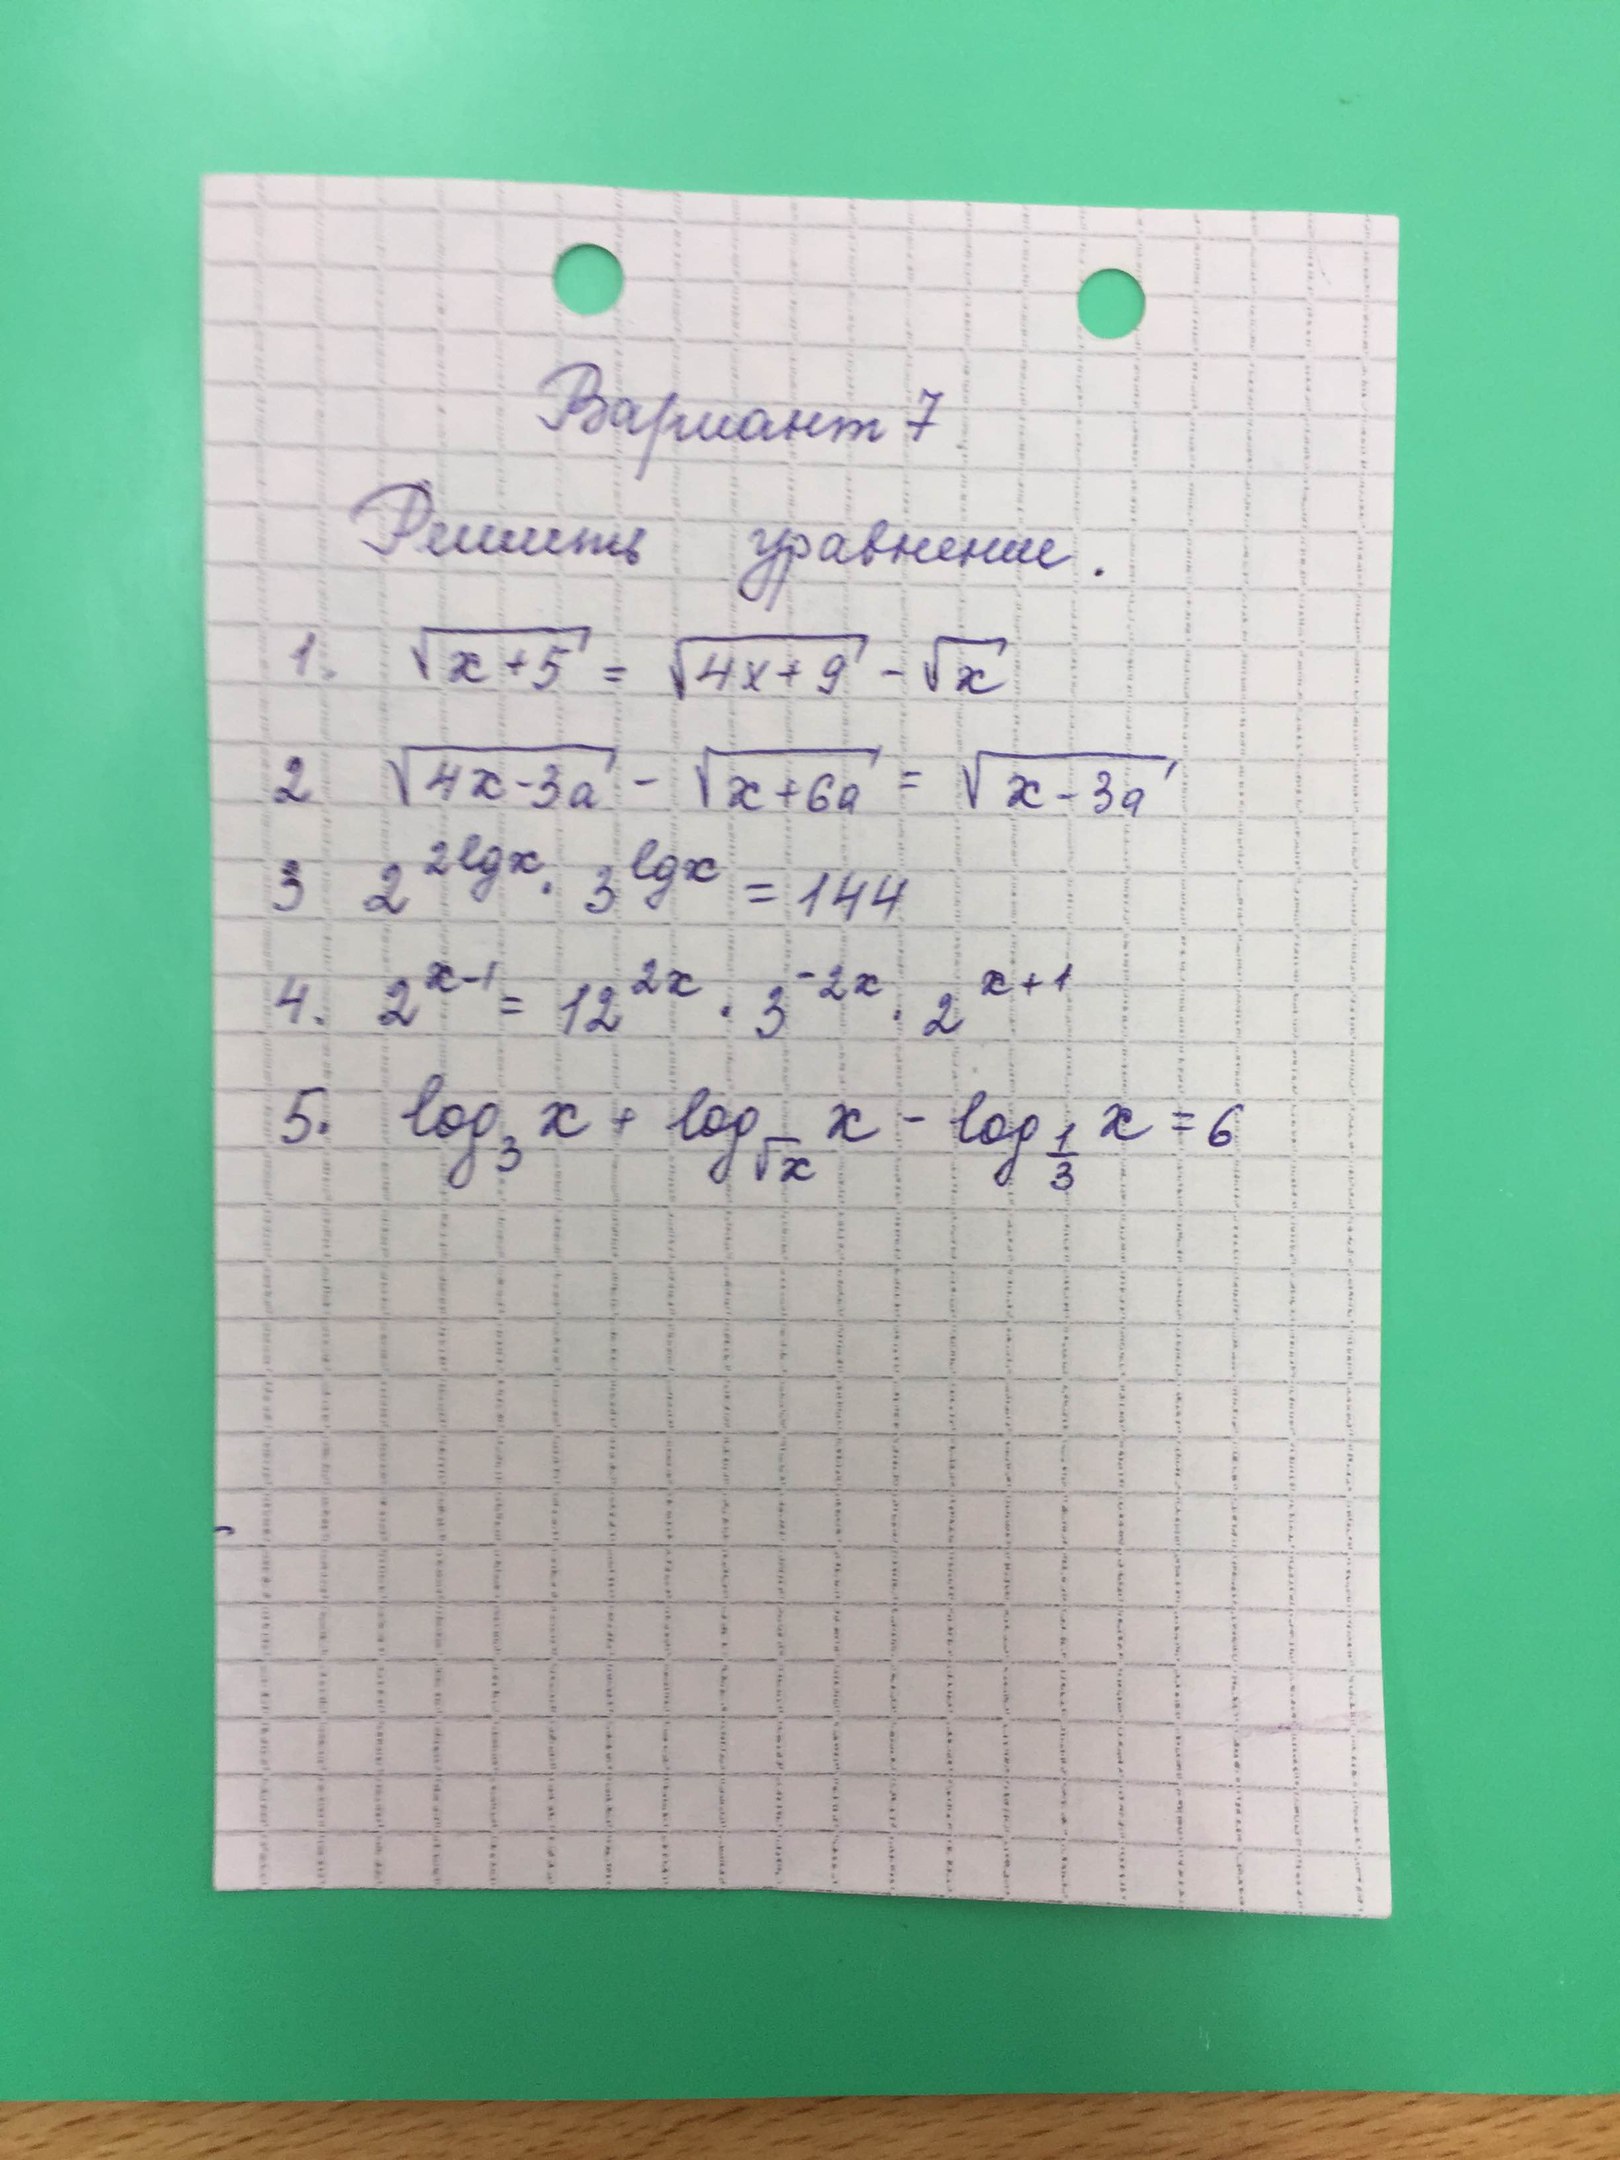 Вариант 7
Решить уравнение.
1. √(x+5) = √(4x+9) - √x
2 √(4x-3a) - √(x+6a) = √(x-3a)
3 2^(2lgx) · 3^(lgx) = 144
4. 2^(x-1) = 12^(2x) · 3^(-2x) · 2^(x+1)
5. log₃ x + log_√x x - log_(1/3) x = 6